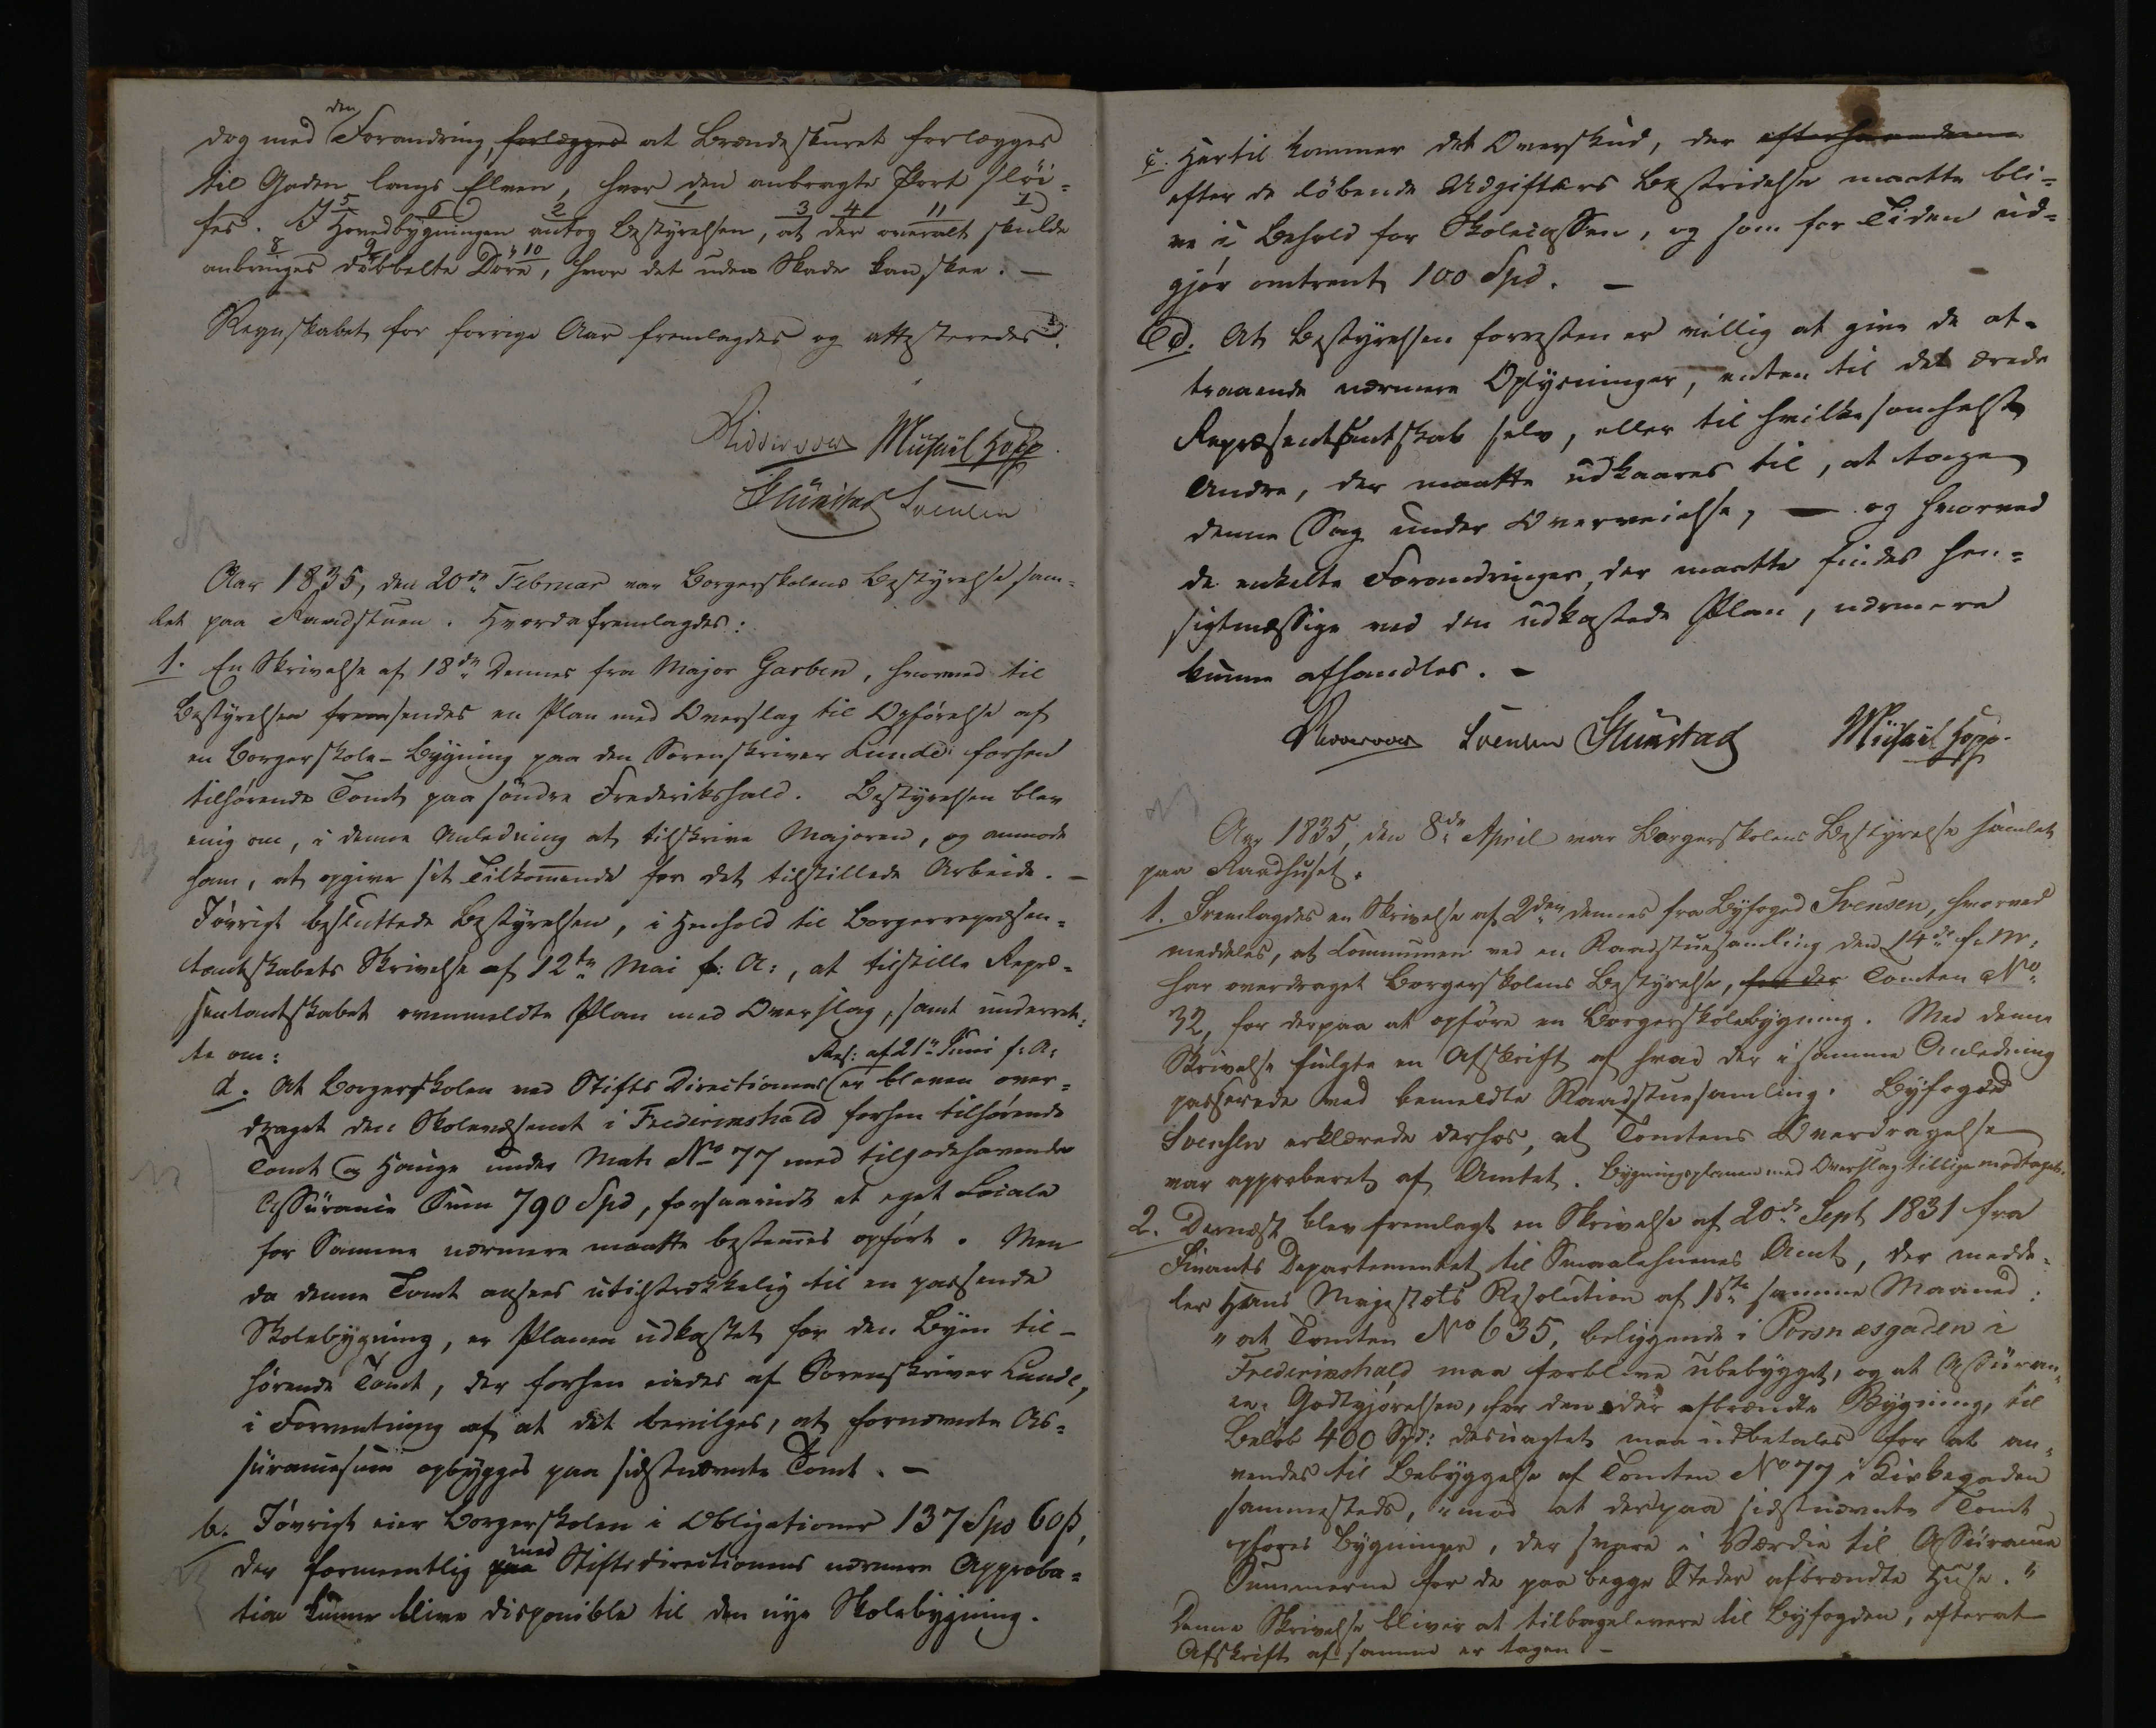 den
dog med Forandring, forlægges at Brændeskuret forlægges
til Gaden langs Elven, hvor den anbragte Port slöi-
fes. I Hovedbygningen antog Bestyrelsen, at der overalt skulde
anbringes dobbelte Döre, hvor det uden Skade kan skee. —
Regnskabet for forrige Aar fremlagdes og attesteredes.
Michael Hopp
Stünitad Svensen
Aar 1835, den 20de Februar var Borgerskolens Bestyrelse sam-
let paa Raadstuen. Hvorda fremlagdes:
1. En Skrivelse af 18de dennes fra Major Garben, hvorved til
Bestyrelsen fremsendes en Plan med Overslag til Opförelse af
en Borgerskole-Bygning paa den Sorenskriver Lunde forhen
tilhørende Tomt paa söndre Frederikshald. Bestyrelsen blev
enig om, i denne Anledning at tilskrive Majoren, og anmode
ham, at opgive sit Tilkommende for det tilstillede Arbeide. —
Iøvrigt besluttede Bestyrelsen, i Henhold til Borgerrepræsen-
tantskabets Skrivelse af 12te Mai f: A:, at tilstille Repræ-
sentantskabet ovenmeldte Plan med Overslag, samt underret-
te om:
Res: af 21de Juni f: A:
a. At Borgerskolen ved Stifts Directionens er bleven over-
draget den Skolevæsenet i Fredrikshald forhen tilhørende
Tomt og Hauge under Mat. No 77 med tilgodehavende
Assürance Sum 790 Spd, forsaavidt et eget Locale
for Samme nærmere maatte bestemmes opført. Men
da denne Tomt ansees utilstrækkelig til en passende
Skolebygning, er Planen udkastet for den Byen til-
hørende Tomt, der forhen eiedes af Sorenskriver Lunde,
i Forventning af at det bevilges, at fornævnte As-
sürancesum opbygges paa sidstnævnte Tomt. —
b. Iøvrigt eier Borgerskolen i Obligationer 137 Spd 60 ß,
med
der formentlig paa Stiftsdirectionens nærmere Approba-
tion kunne blive disponible til den nye Skolebygning.
c. Hertil kommer det Overskud, der efterhaanden
efter de løbende Udgifters Bestridelse maatte bli-
ve i Behold for Skolecassen, og som for Tiden ud-
gjör omtrent 100 Spd. —
d. At Bestyrelsen forresten er villig at give de at-
traaende nærmere Oplysninger, enten til det ærede
Repræsentantskab selv, eller til hvilkesomhelst
Andre, der maatte udkaares til, at tage
denne Sag under Overveielse, — og hvorved
de enkelte Forandringer, der maatte findes hen-
sigtmæssige ved den udkastede Plan, nærmere
kunne afhandles. —
Svensen Stünitad Michael Hopp.
Aar 1835, den 8de April var Borgerskolens Bestyrelse samlet
paa Raadhuset.
1. Fremlagdes en Skrivelse af 2den dennes fra Byfoged Svensen, hvorved
meddeles, at Communen ved en Raadstuesamling den 14de f. M.
har overdraget Borgerskolens Bestyrelse, for der Tomten No
32, for derpaa at opføre en Borgerskolebygning. Med denne
Skrivelse fulgte en Afskrift af hvad der i samme Anledning
passerede ved bemeldte Raadstuesamling. Byfoged
Svensen erklærede derhos, at Tomtens Overdragelse
var approberet af Amtet. Bygningsplanen med Overslag tillige modtaget.
2. Dernæst blev fremlagt en Skrivelse af 20de Sept 1831 fra
Finants Departementet til Smaalehnenes Amt, der medde-
ler Hans Majestæts Resolution af 15te samme Maaned:
"at Tomten No 635, beliggende i Porsnæsgaden i
Fredrikshald maa forblive ubebygget, og at Assüran-
ce-Godtgjørelsen, for den der afbrændte Bygning, til
Beløb 400 Spd: desuagtet maa udbetales for at an-
vendes til Bebyggelse af Tomten No 77 i Kirkegaden
sammesteds, imod at der paa sidstnævnte Tomt
opføres Bygninger, der svare i Værdie til Assürance
Summerne for de paa begge Steder afbrændte Huse."
Denne Skrivelse bliver at tilbagelevere til Byfogden, efterat
Afskrift af samme er tagen. —